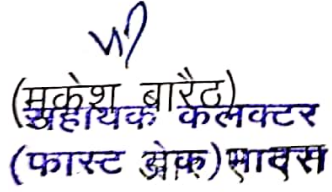 (मुकेश बारैठ)
सहायक कलक्टर
(फास्ट ट्रेक)